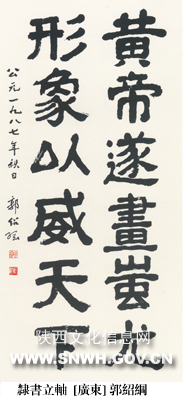 黃帝遂畫蚩尤
形象以威天下
公元一九八七年秋日
郭紹綱
陕西文化信息网
WWW.SNWH.GOV.CN
隸書立軸 [廣東] 郭紹綱